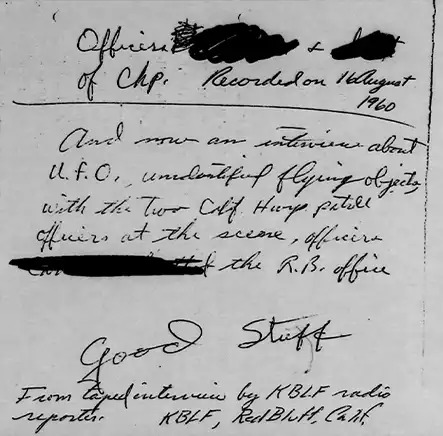 Officers &
of Chp. Recorded on 16 August
1960
And now an interview about
U.F.O., unidentified flying objects,
with the two Calif Hwy patrol
officers at the scene, officers
of the R.B. office
Good Stuff
From taped interview by KBLF radio
reporter. KBLF, Red Bluff, Calif.